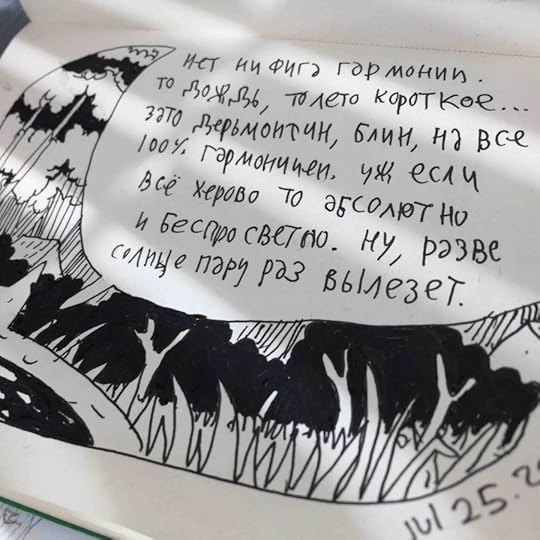 нет ни фига гармонии.
то дождь, то лето короткое...
зато дерьмонтин, блин, на все
100% гармоничен. уж если
всё херово то абсолютно
и беспросветно. ну, разве
солнце пару раз вылезет.
Jul 25.